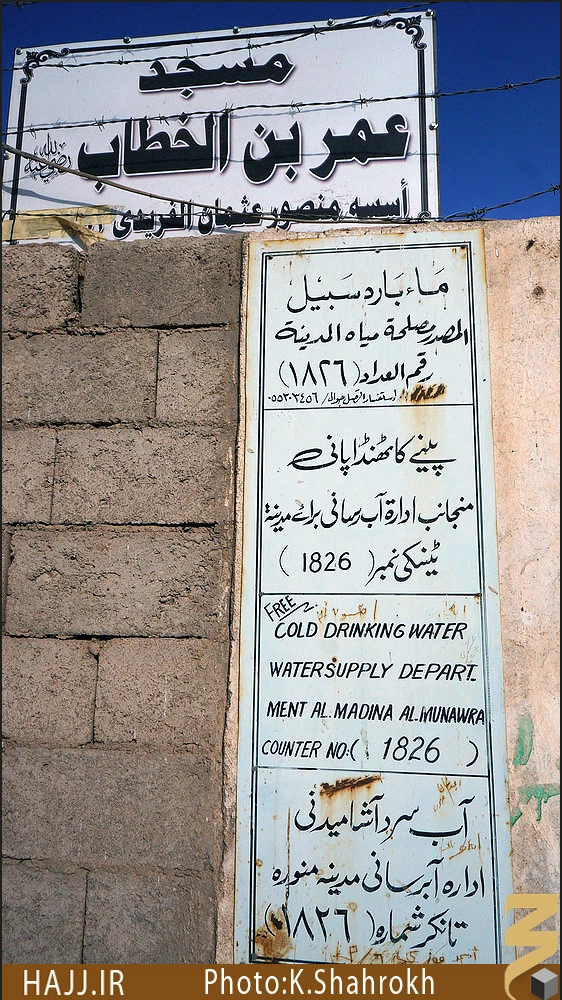 مسجد
عمر بن الخطاب رضي الله عنه
أسسه منصور عثمان الفريدي
ماء بارد سبيل
المصدر مصلحة مياه المدينة
رقم العداد (١٨٢٦)
پینے کا ٹھنڈا پانی
منجانب ادارۃ آب رسانی برائے مدینۃ
ٹینکی نمبر (1826)
FREE
COLD DRINKING WATER
WATERSUPPLY DEPART.
MENT AL.MADINA AL.MUNAWRA
COUNTER NO:( 1826 )
آب سرد آشامیدنی
اداره آبرسانی مدینه منوره
تانکر شماره (١٨٢٦)
HAJJ.IR
Photo:K.Shahrokh